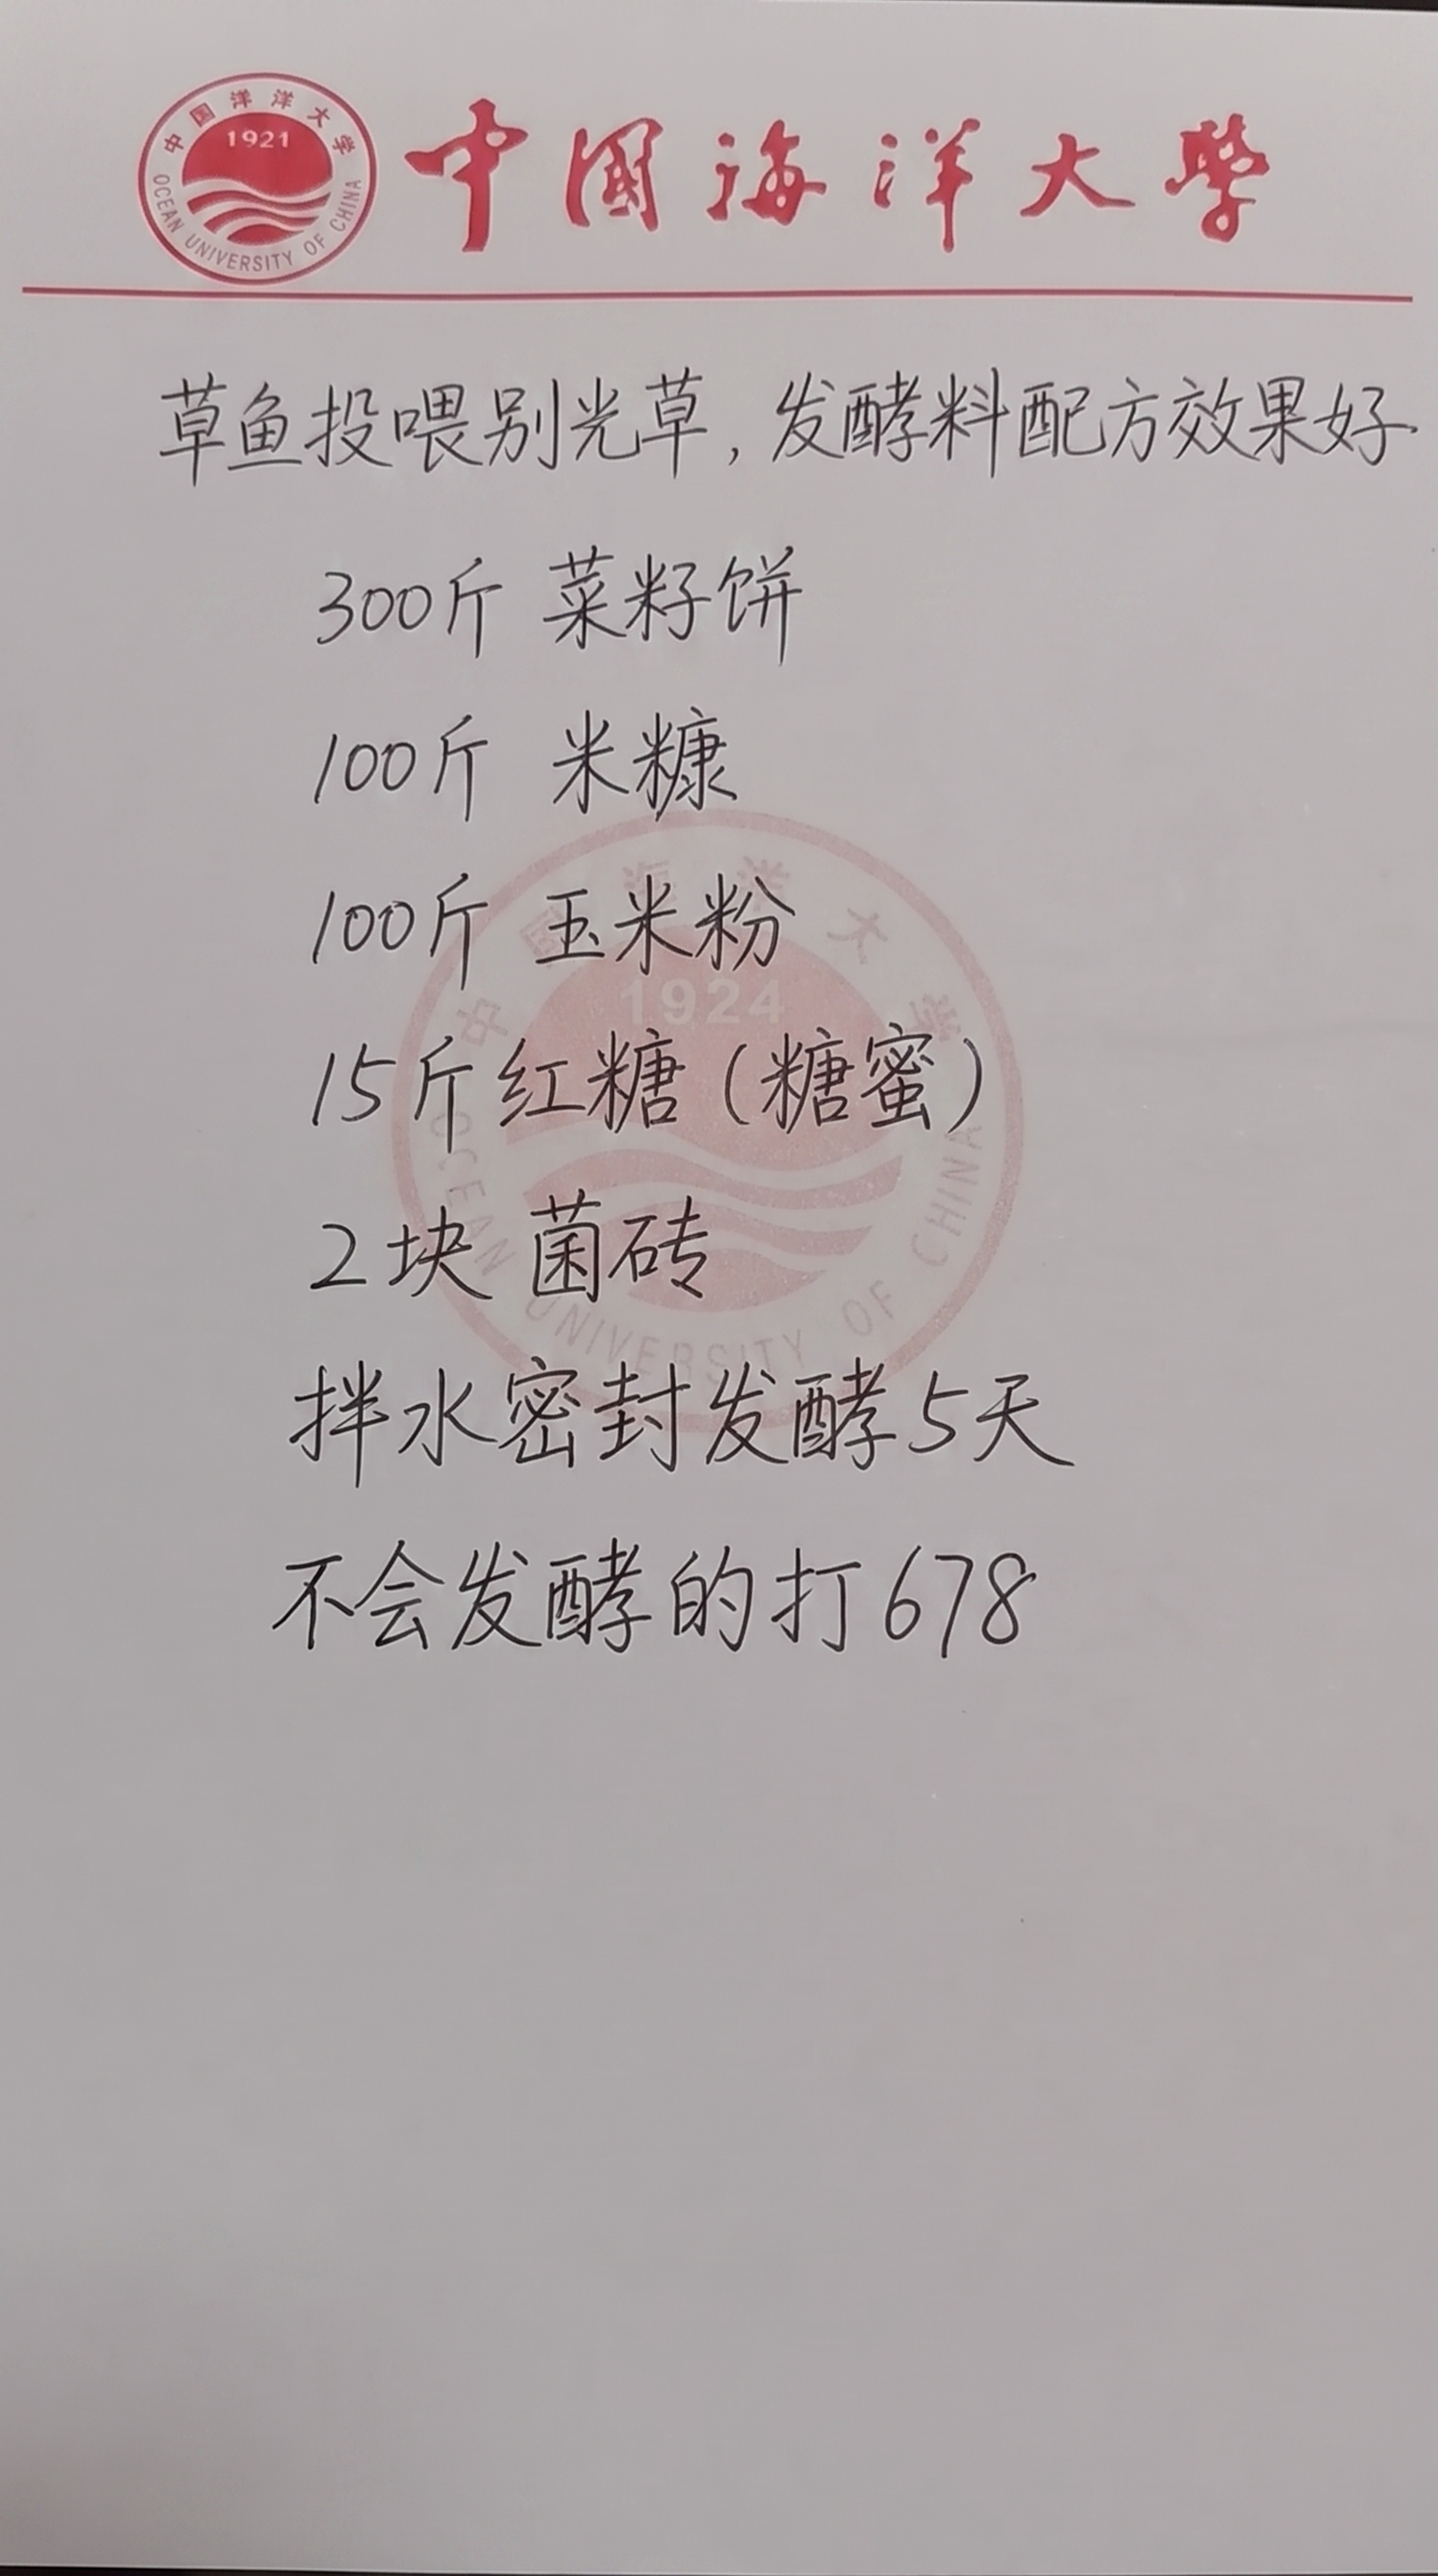 中国洋洋大学
1921
OCEAN UNIVERSITY OF CHINA
中國海洋大學
草鱼投喂别光草，发酵料配方效果好
300斤 菜籽饼
100斤 米糠
100斤 玉米粉
15斤 红糖（糖蜜）
2块 菌砖
拌水密封发酵5天
不会发酵的打678
中國海洋大学
1924
OCEAN UNIVERSITY OF CHINA